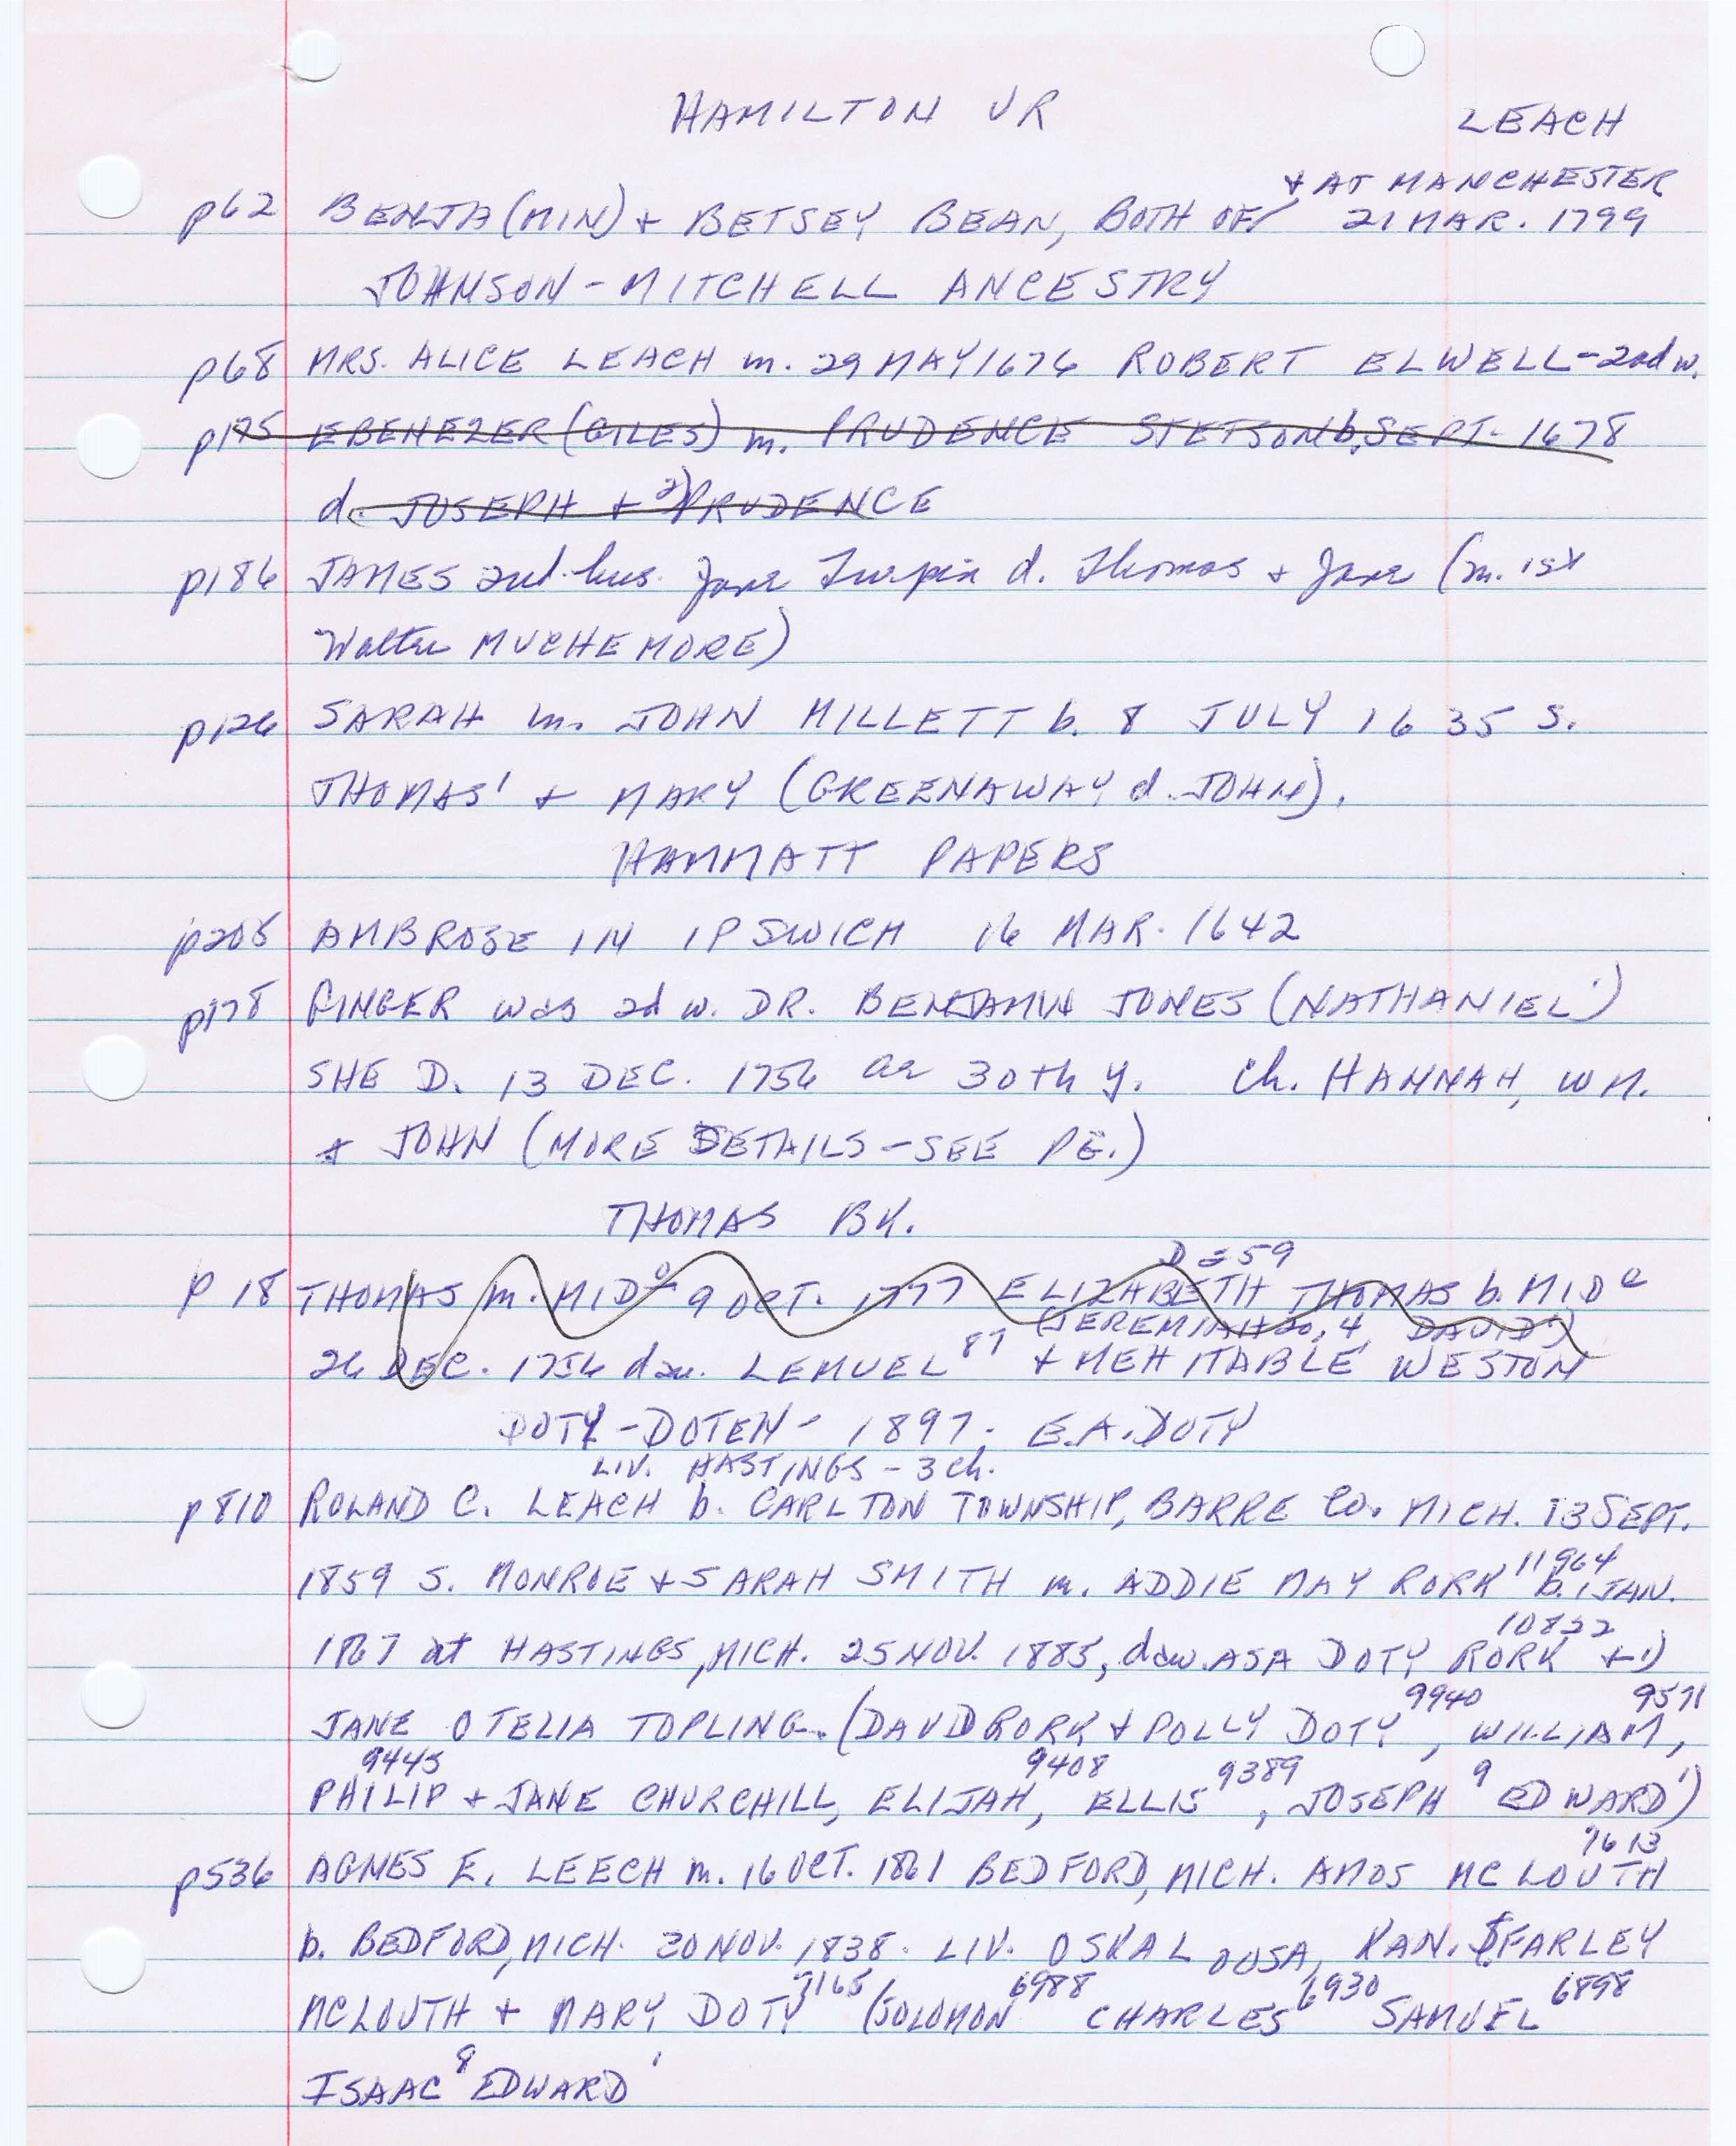 HAMILTON VR
LEACH
+ AT MANCHESTER
p62 BENJA(MIN) + BETSEY BEAN, BOTH OF/ 21 MAR. 1799
JOHNSON-MITCHELL ANCESTRY
p68 MRS. ALICE LEACH m. 29 MAY 1676 ROBERT ELWELL-2nd w.
p175 EBENEZER (GILES) m. PRUDENCE STETSON b. SEPT. 1678
d. JOSEPH + 2) PRUDENCE
p186 JAMES 2nd. hus. Jane Turpin d. Thomas + Jane (m. 1st
Walter MUCHEMORE)
p126 SARAH m. JOHN MILLETT b. 8 JULY 1635 S.
THOMAS¹ + MARY (GREENAWAY d. JOHN).
HAMMATT PAPERS
p205 AMBROSE IN IPSWICH 16 MAR. 1642
p178 GINGER was 2d w. DR. BENJAMIN JONES (NATHANIEL¹)
SHE D. 13 DEC. 1756 ae 30th y. ch. HANNAH, WM.
+ JOHN (MORE DETAILS - SEE PG.)
THOMAS BK.
D = 59
p 18 THOMAS m. MIDº 9 OCT. 1777 ELIZABETH THOMAS b. MIDº
(JEREMIAH 20, 4, DAVID¹)
26 DEC. 1756 dau. LEMUEL ⁸⁷ + MEHITABLE WESTON
DOTY-DOTEN- 1897. E.A. DOTY
LIV. HASTINGS - 3 ch.
p810 ROLAND C. LEACH b. CARLTON TOWNSHIP, BARRE Co. MICH. 13 SEPT.
1859 S. MONROE + SARAH SMITH m. ADDIE MAY RORK ¹¹⁹⁶⁴ b. 1 JAN.
1867 at HASTINGS, MICH. 25 NOV. 1885, dau. ASA DOTY RORK ¹⁰⁸²² + 1)
JANE OTELIA TOPLING. (DAVID RORK + POLLY DOTY ⁹⁹⁴⁰, WILLIAM ⁹⁵⁷¹,
PHILIP ⁹⁴⁴⁵ + JANE CHURCHILL, ELIJAH ⁹⁴⁰⁸, ELLIS ⁹³⁸⁹, JOSEPH ⁹ EDWARD¹)
p536 AGNES E. LEECH m. 16 OCT. 1861 BEDFORD, MICH. AMOS MCLOUTH ⁷⁶¹³
b. BEDFORD, MICH. 30 NOV. 1838. LIV. OSKALOOSA, KAN. S FARLEY
MCLOUTH + MARY DOTY ⁷¹⁶⁵ (SOLOMON ⁶⁹⁸⁸ CHARLES ⁶⁹³⁰ SAMUEL ⁶⁸⁹⁸
ISAAC ⁸ EDWARD ¹